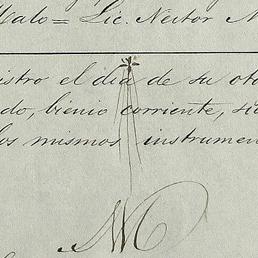 Malo = Lic. Nestor M
istro el día de su oto
do, bienio corriente, sie
los mismos instrumen